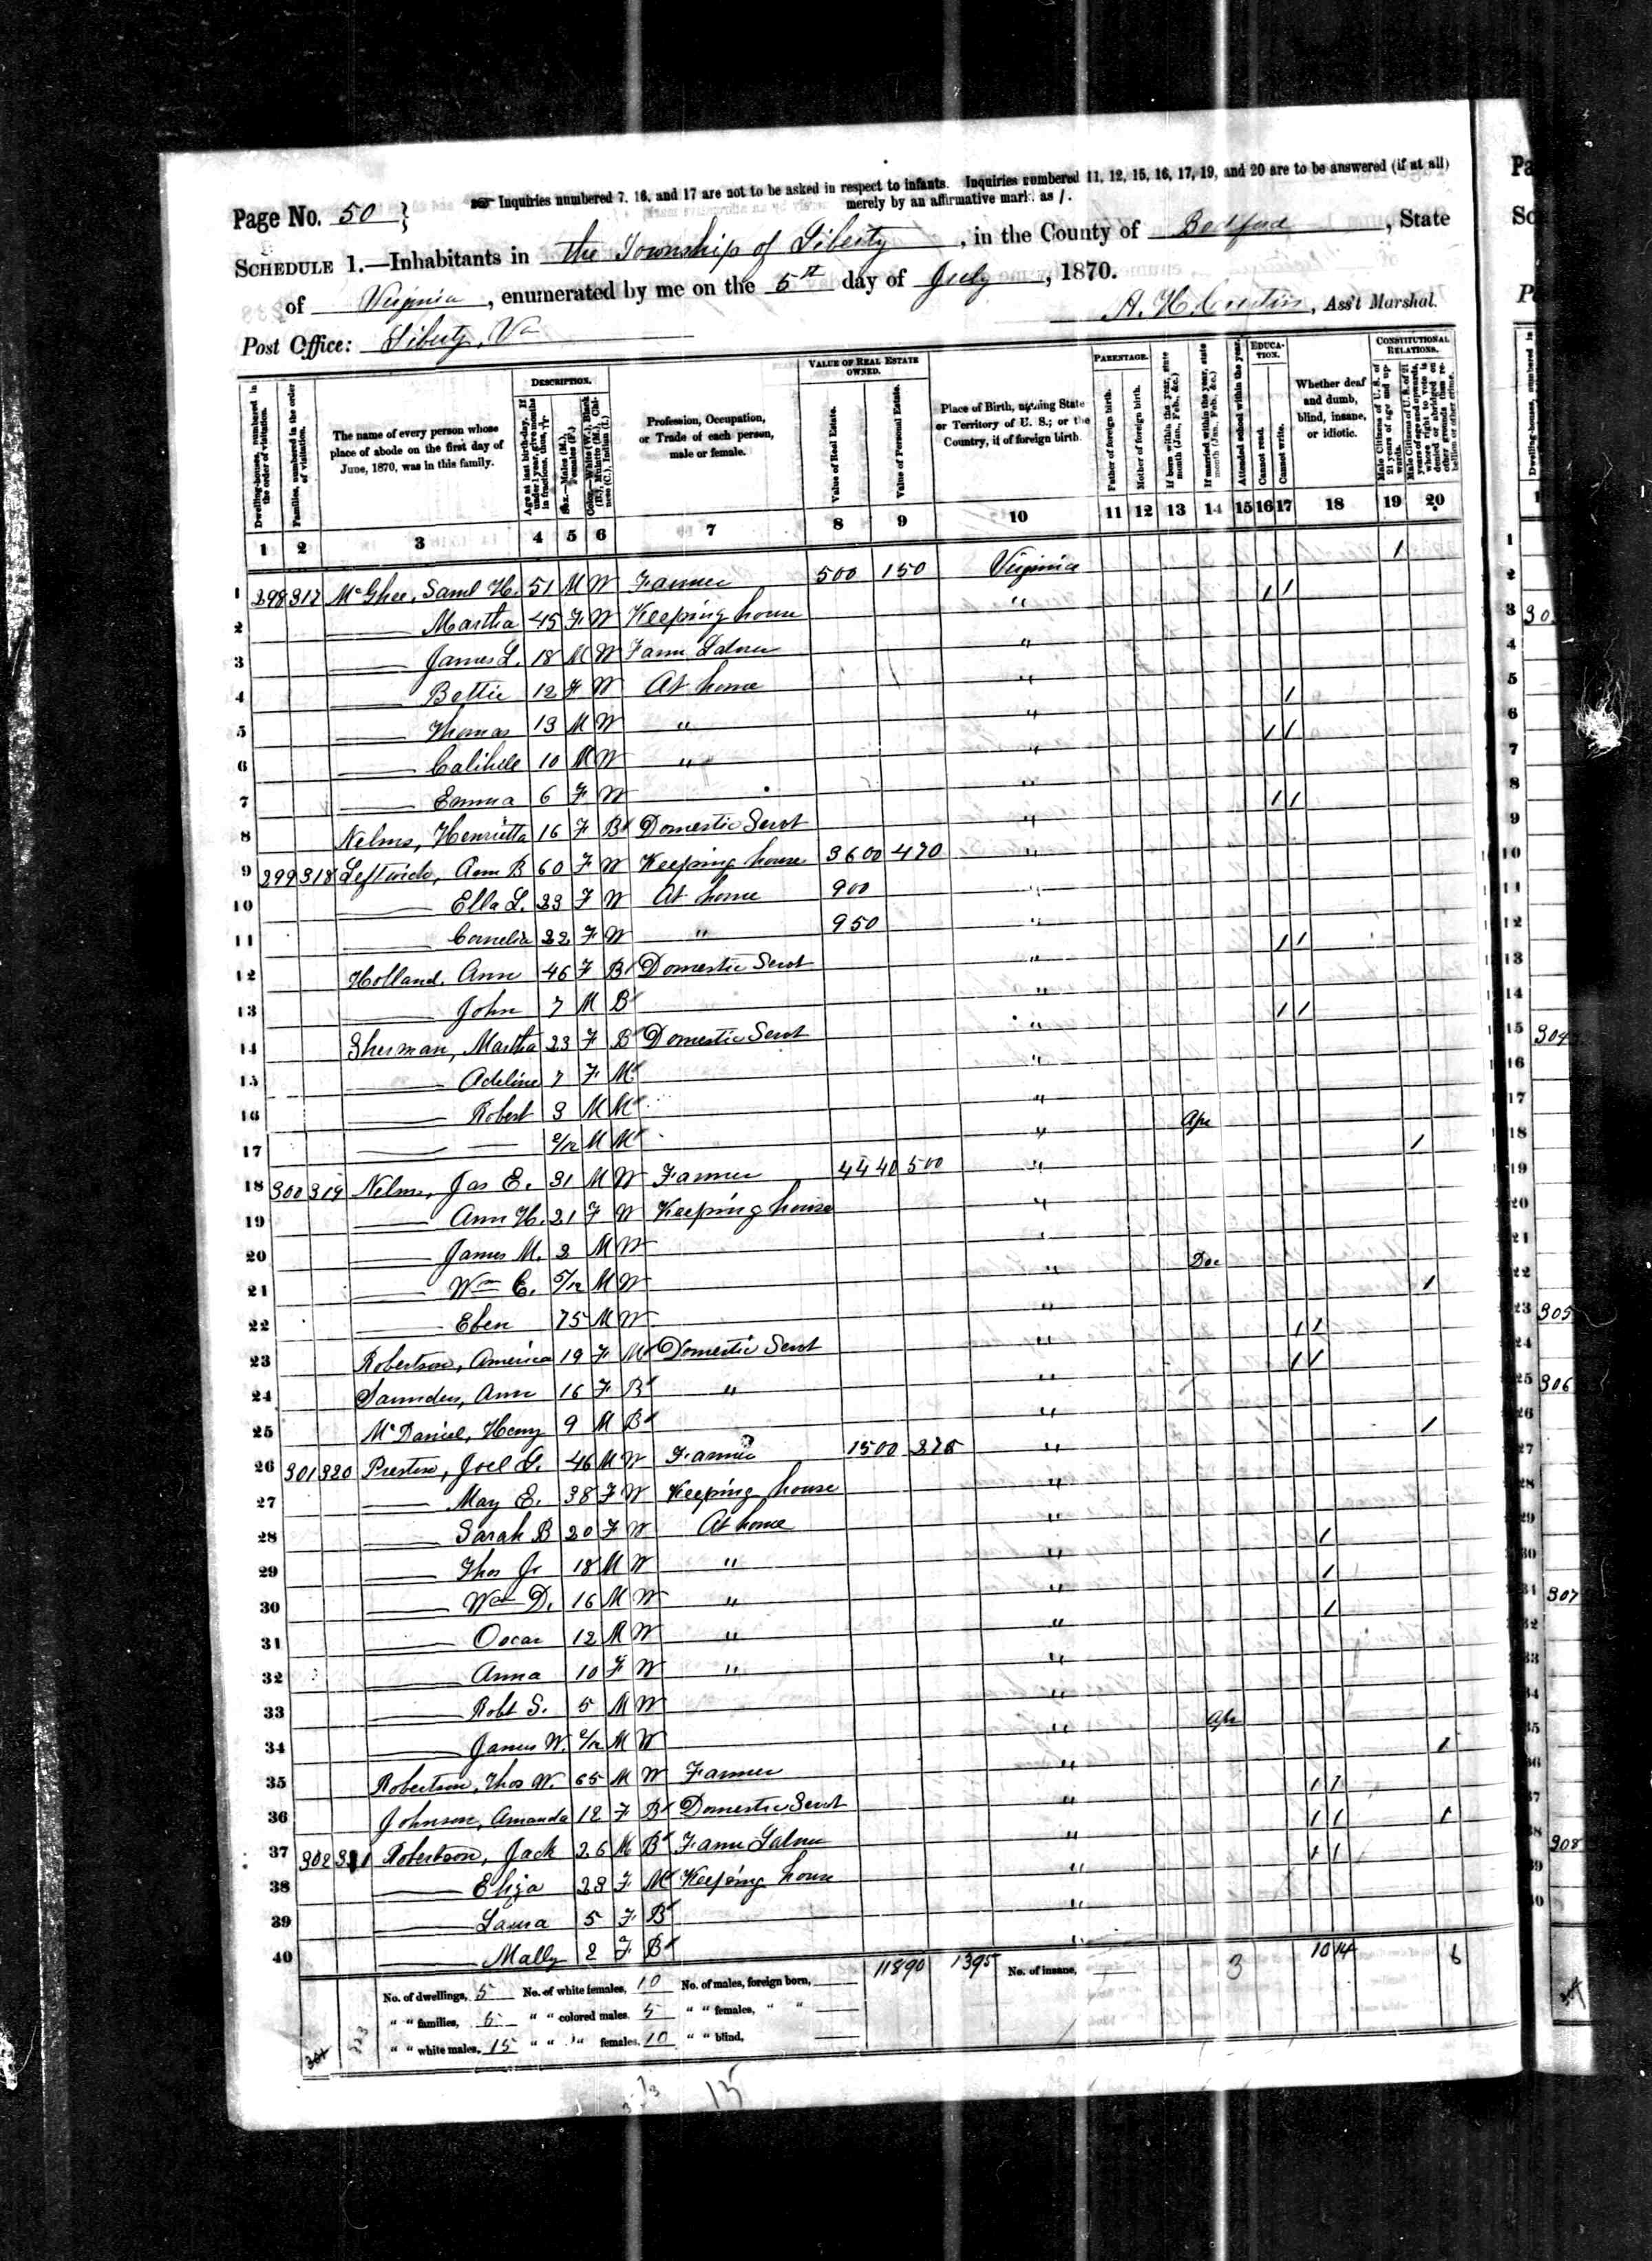 Inquiries numbered 7, 16, and 17 are not to be asked in respect to infants. Inquiries numbered 11, 12, 15, 16, 17, 19, and 20 are to be answered (if at all)
merely by an affirmative mark, as /.
Page No. 50
SCHEDULE 1.—Inhabitants in the Township of Liberty, in the County of Bedford, State
of Virginia, enumerated by me on the 5th day of July, 1870.
Post Office: Liberty, Va
A. H. , Ass't Marshal.
Dwelling-houses, numbered in the order of visitation.
Families, numbered in the order of visitation.
The name of every person whose place of abode on the first day of June, 1870, was in this family.
DESCRIPTION.
Age at last birth-day. If under 1 year, give months in fractions, thus, 3/12
Sex.—Males (M.), Females (F.)
Color.—White (W.), Black (B.), Mulatto (M.), Chinese (C.), Indian (I.)
Profession, Occupation, or Trade of each person, male or female.
VALUE OF REAL ESTATE OWNED.
Value of Real Estate.
Value of Personal Estate.
Place of Birth, naming State or Territory of U. S.; or the Country, if of foreign birth.
PARENTAGE.
Father of foreign birth.
Mother of foreign birth.
If born within the year, state month (Jan., Feb., &c.)
If married within the year, state month (Jan., Feb., &c.)
Attended school within the year.
EDUCATION.
Cannot read.
Cannot write.
Whether deaf and dumb, blind, insane, or idiotic.
CONSTITUTIONAL RELATIONS.
Male Citizens of U. S. of 21 years of age and upwards.
Male Citizens of U. S. of 21 years of age and upwards, whose right to vote is denied or abridged on other grounds than rebellion or other crime.
1 2 3 4 5 6 7 8 9 10 11 12 13 14 15 16 17 18 19 20
1 298 317 McGhee, Saml H. 51 M W Farmer 500 150 Virginia /
2 — Martha 45 F W Keeping house " / /
3 — James L. 18 M W Farm Labner "
4 — Bettie 12 F W At home "
5 — Thomas 13 M W " " /
6 — 10 M W " " / /
7 — Emma 6 F W "
8 Nelms, Henrietta 16 F B Domestic Servt " / /
9 299 318 Leftwich, Ann B 60 F W Keeping house 3600 420 "
10 — Ella L. 23 F W At home 900 "
11 — Cornelia 22 F W " 950 "
12 Holland, Ann 46 F B Domestic Servt " / /
13 — John 7 M B "
14 Sherman, Martha 23 F B Domestic Servt " / /
15 — Adeline 7 F M "
16 — Robert 3 M M "
17 — — 2/12 M M " Apr
18 300 319 Nelms, Jas E. 31 M W Farmer 4440 500 " /
19 — Ann H. 21 F W Keeping house "
20 — James M. 2 M W "
21 — Wm C. 5/12 M W " Dec
22 — Eben 75 M W " /
23 Robertson, America 19 F M Domestic Servt " / /
24 Saunders, Ann 16 F B " " / /
25 McDaniel, Henry 9 M B "
26 301 320 Preston, Joel S. 46 M W Farmer 1500 275 " /
27 — May E. 38 F W Keeping house "
28 — Sarah B 20 F W At home "
29 — Thos Jr 18 M W " " /
30 — Wm D. 16 M W " " /
31 — Oscar 12 M W " " /
32 — Anna 10 F W " "
33 — Robt S. 5 M W "
34 — James W. 2/12 M W " Apr
35 Robertson, Thos W. 65 M W Farmer " /
36 Johnson, Amanda 12 F B Domestic Servt " / /
37 302 321 Robertson, Jack 26 M B Farm Labner " / / /
38 — Eliza 23 F M Keeping house " / /
39 — Laura 5 F B "
40 — Mally 2 F B "
No. of dwellings, 5 No. of white females, 10 No. of males, foreign born, — 11890 1395 No. of insane, — 3 10 14 6
" " families, 5 " " colored males, 5 " " females, " " —
" " white males, 15 " " " females, 10 " " blind, —
15